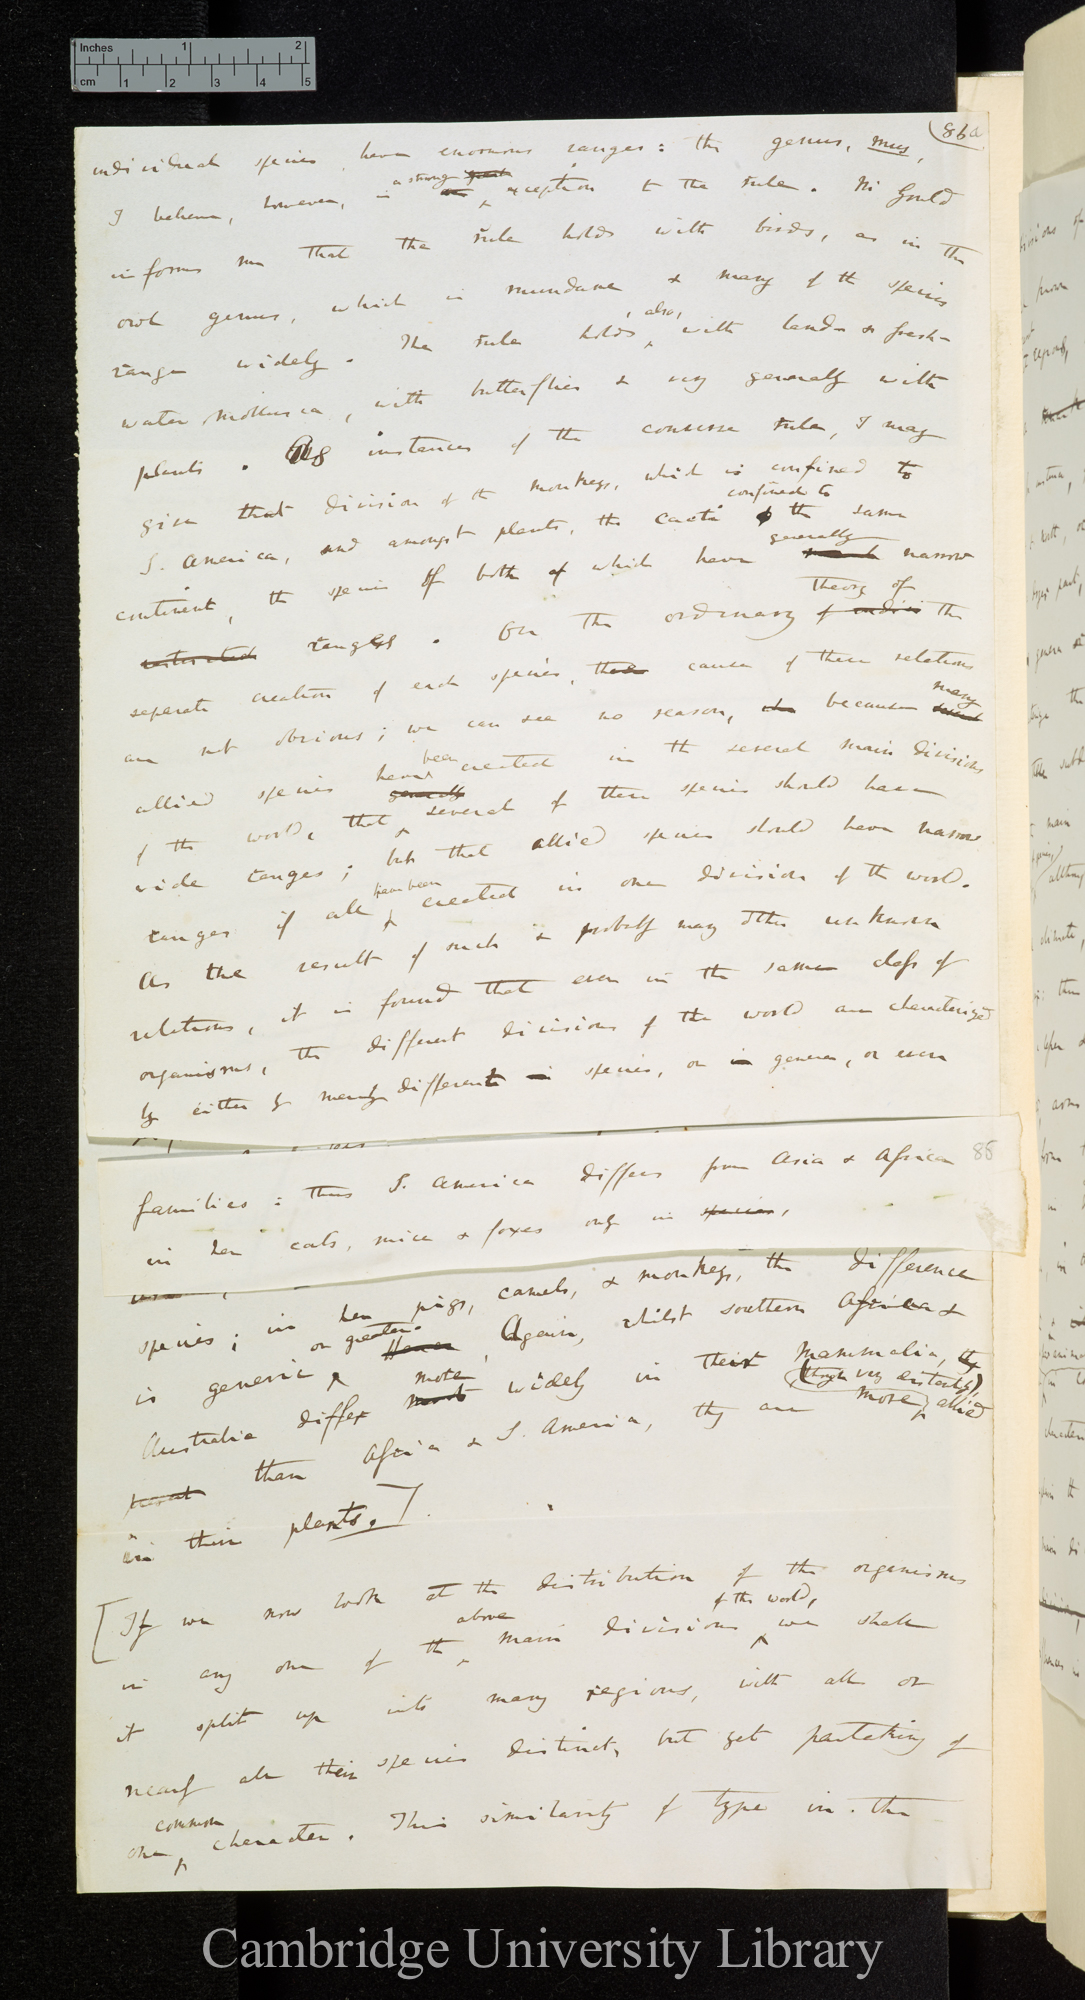 Inches 1 2
cm 1 2 3 4 5
86a
individual species have enormous ranges: the genus, mus,
a strong great
I believe, however, is an exception to the rule. Mr Gould
informs me that the rule holds with birds, as in the
owl genus, which is mundane & many of the species
, also,
range widely. The rule holds with land & fresh-
water Mollusca, with butterflies & very generally with
plants. As instances of the converse rule, I may
give that division of the monkeys, which is confined to
confined to
S. America, and amongst plants, the Cacti the same
generally
continent, the species of both of which have narrow
theory of
restricted ranges. On the ordinary of the
separate creation of each species, the cause of these relations
many
are not obvious; we can see no reason, because
been
allied species have created in the several main divisions
generally
of the world, that several of these species should have
wide ranges; but that allied species should have narrow
have been
ranges if all created in one division of the world.
As the result of such & probably many other unknown
relations, it is found that even in the same class of
organisms, the different divisions of the world are characterized
by either by merely different in species, or in genera, or even
85
families: thus S. America differs from Asia & Africa
in her cats, mice & foxes only in species,
species; in her pigs, camels, & monkeys, the difference
or greater.
is generic Hence Again, whilst southern Africa &
more
Australia differ most widely in their Mammalia, they
(though very distantly)
than Africa & S. America, they are more allied
in their plants.]
[If we now look at the distribution of the organisms
above of the world,
in any one of the main divisions we shall
it split up into many regions, with all or
nearly all their species distinct, but yet partaking of
common
one character. This similarity of type in the
Cambridge University Library